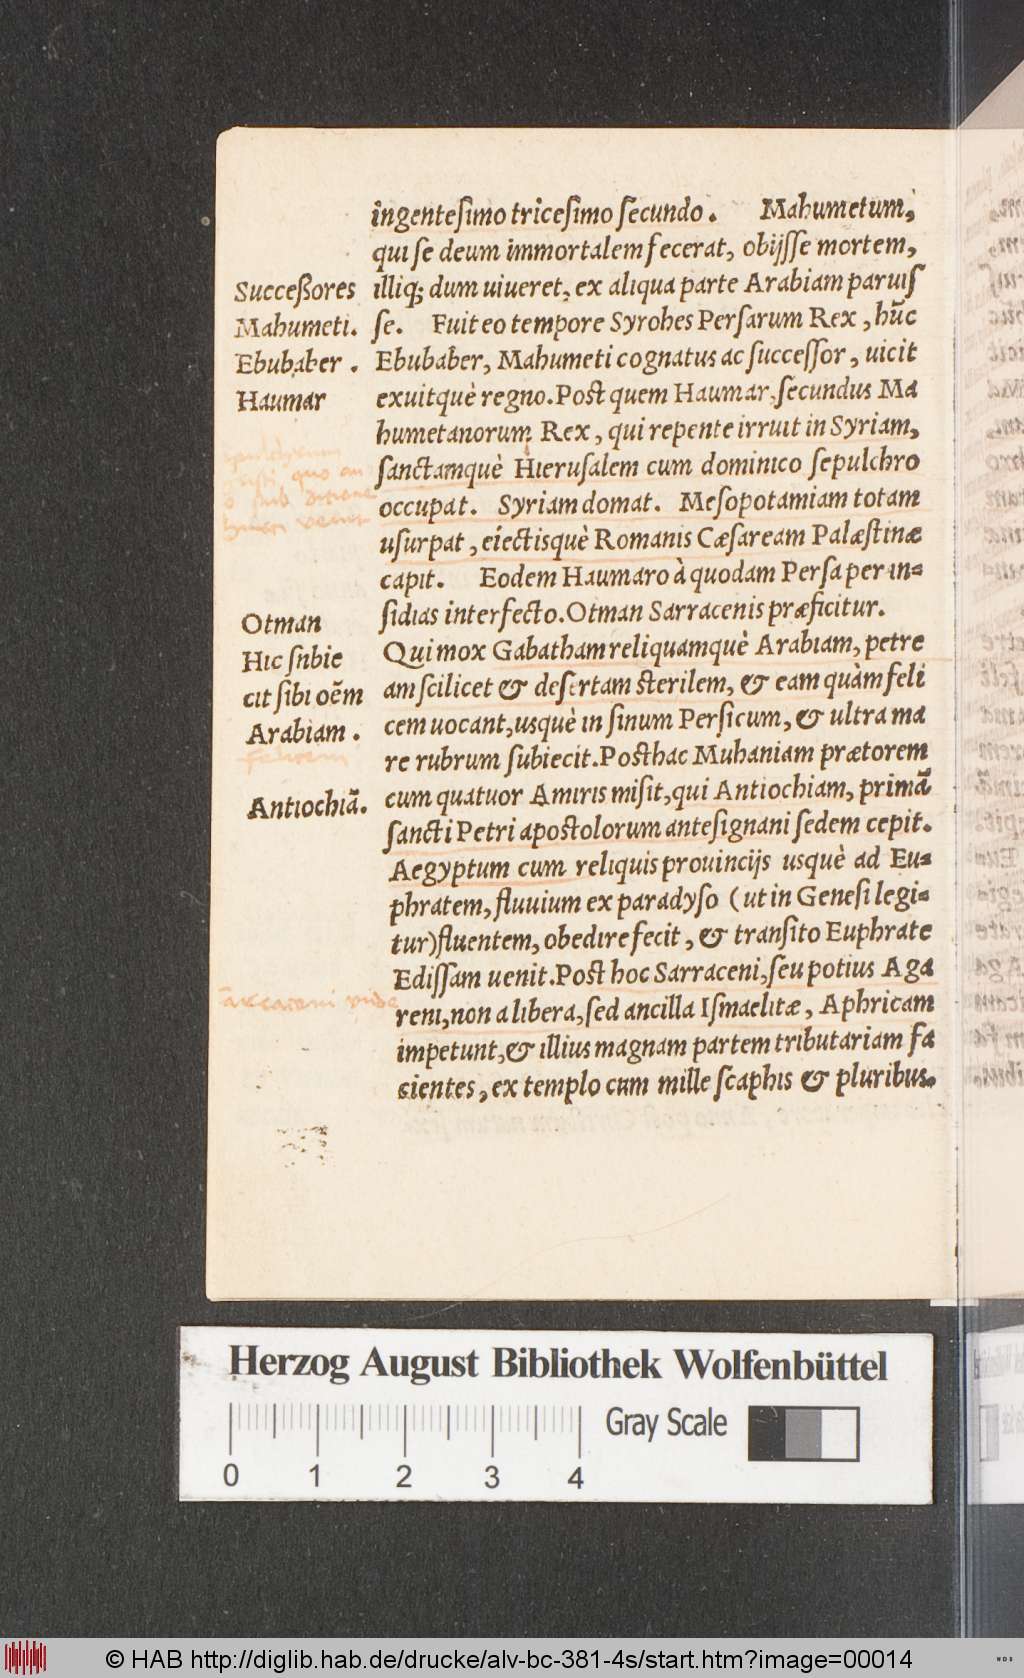 ingenteſimo triceſimo ſecundo. Mahumetum,
qui ſe deum immortalem fecerat, obijſſe mortem,
illiq; dum uiueret, ex aliqua parte Arabiam paruiſ
ſe. Fuit eo tempore Syrohes Perſarum Rex, hūc
Ebubaber, Mahumeti cognatus ac ſucceſſor, uicit
exuitquè regno. Poſt quem Haumar, ſecundus Ma
humetanorum Rex, qui repente irruit in Syriam,
ſanctamquè Hieruſalem cum dominico ſepulchro
occupat. Syriam domat. Meſopotamiam totam
uſurpat, eiectisquè Romanis Cæſaream Palæſtinæ
capit. Eodem Haumaro à quodam Perſa per in=
ſidias interfecto. Otman Sarracenis præficitur.
Qui mox Gabatham reliquamquè Arabiam, petre
am ſcilicet & deſertam ſterilem, & eam quàm feli
cem uocant, usquè in ſinum Perſicum, & ultra ma
re rubrum ſubiecit. Poſthac Muhaniam prætorem
cum quatuor Amiris miſit, qui Antiochiam, primā
ſancti Petri apoſtolorum anteſignani ſedem cepit.
Aegyptum cum reliquis prouincijs usquè ad Eu=
phratem, fluuium ex paradyſo (ut in Geneſi legi=
tur) fluentem, obedire fecit, & tranſito Euphrate
Ediſſam uenit. Poſt hoc Sarraceni, ſeu potius Aga
reni, non a libera, ſed ancilla Iſmaelitæ, Aphricam
impetunt, & illius magnam partem tributariam fa
cientes, ex templo cum mille ſcaphis & pluribus.
Succeßores
Mahumeti.
Ebubaber.
Haumar
Otman
Hic ſubie
cit ſibi oēm
Arabiam.
felicem
Antiochiā.
Herzog August Bibliothek Wolfenbüttel
Gray Scale
0 1 2 3 4
© HAB http://diglib.hab.de/drucke/alv-bc-381-4s/start.htm?image=00014